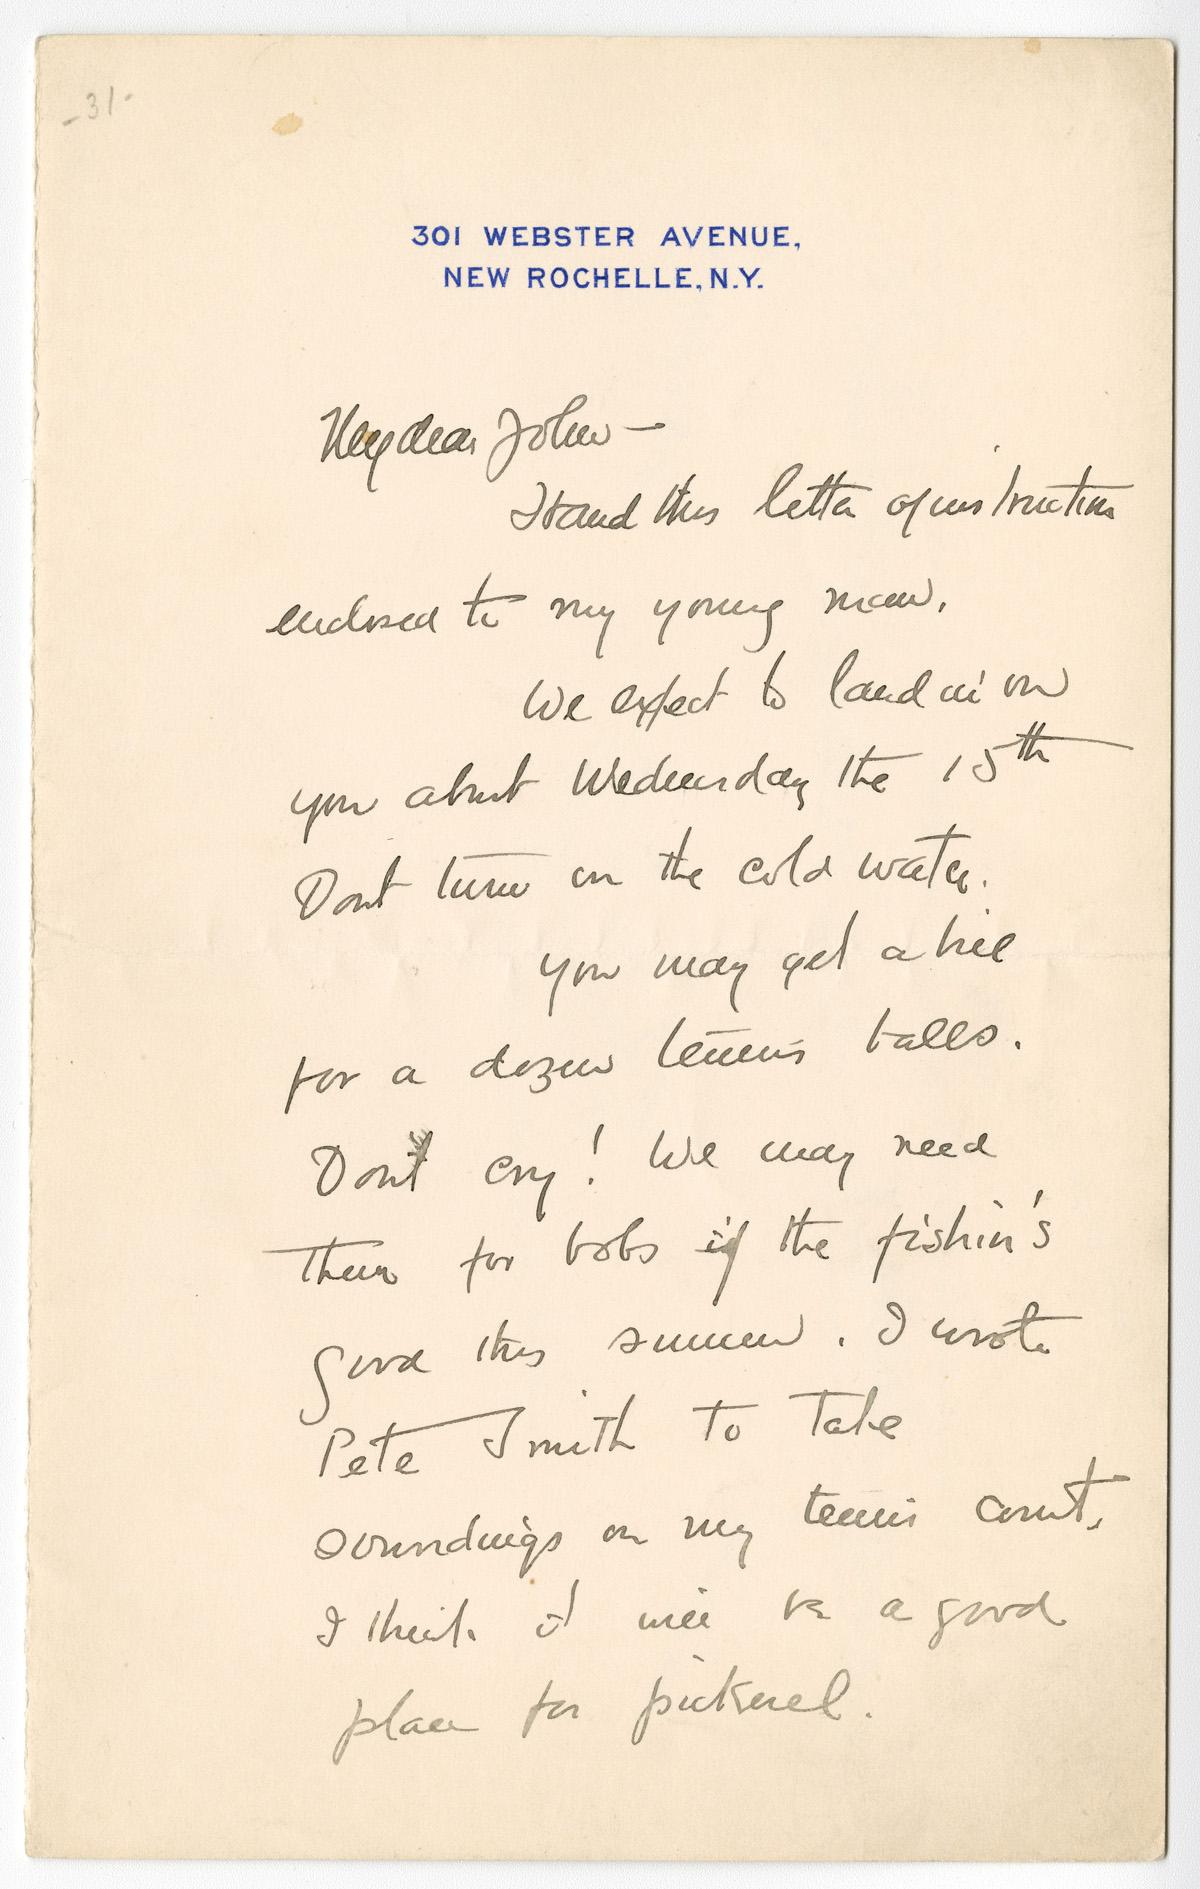 -31-
301 WEBSTER AVENUE,
NEW ROCHELLE, N.Y.
My dear John —
Hand this letter of instructions
enclosed to my young man.
We expect to land in on
you about Wednesday the 15th
Dont turn on the cold water.
You may get a bill
for a dozen tennis balls.
Dont cry! We may need
them for bobs if the fishin's
good this summer. I wrote
Pete Smith to take
soundings on my tennis court.
I think it will be a good
place for pickerel.